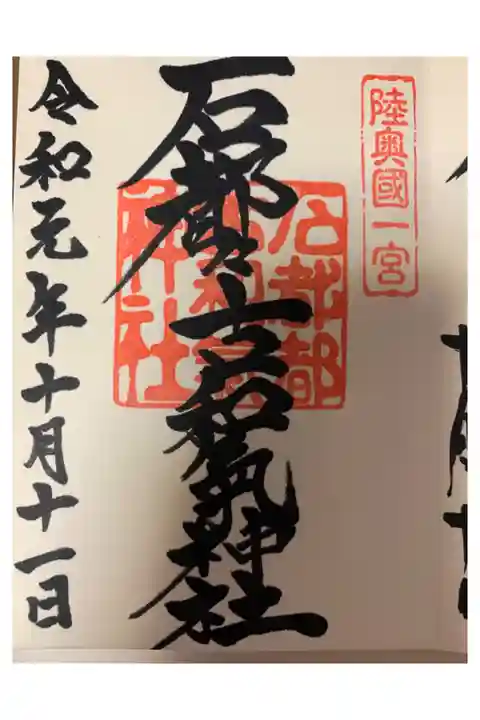 陸奥國一宮
石都々古和氣神社
石都都
古和氣
神社
令和元年十月十一日